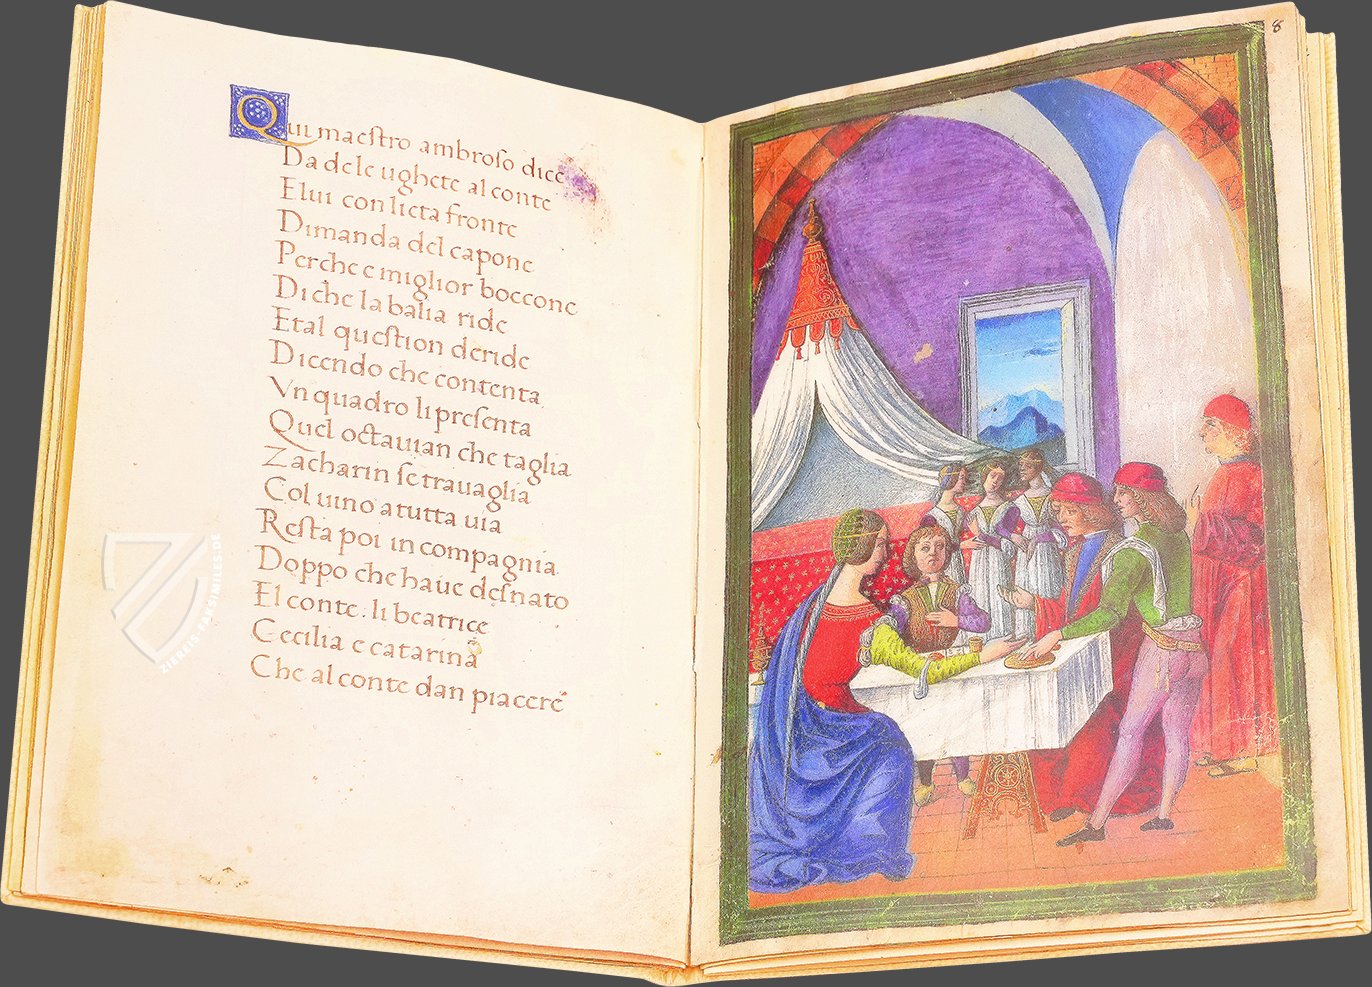 Qui maestro ambroso dice
Da dele ughete al conte
Elui con licta fronte
Dimanda del capone
Perche e miglior boccone
Di che la balia ride
Etal question deride
Dicendo che contenta
Vn quadro li presenta
Quel octauian che taglia
Zacharin se trauaglia
Col uino a tutta uia
Resta poi in compagnia
Doppo che haue desnato
El conte. li beatrice
Cecilia e catarina
Che al conte dan piacere
8
ZIEREIS-FAKSIMILES.DE